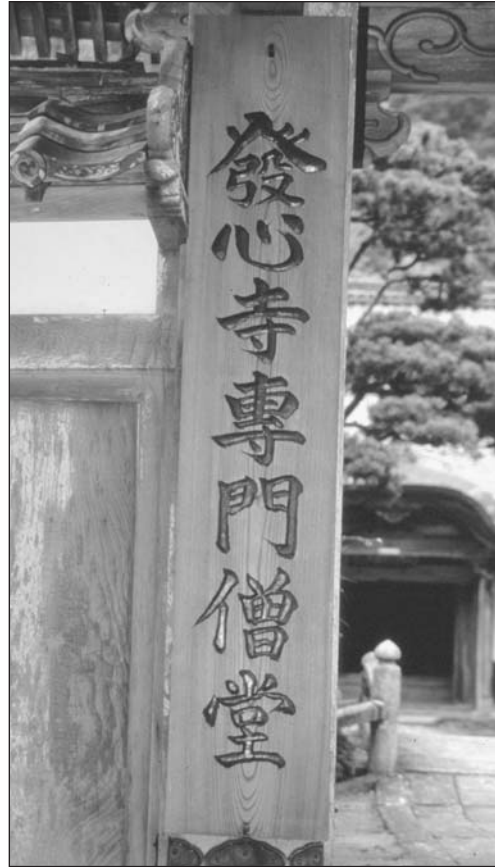 發心寺專門僧堂